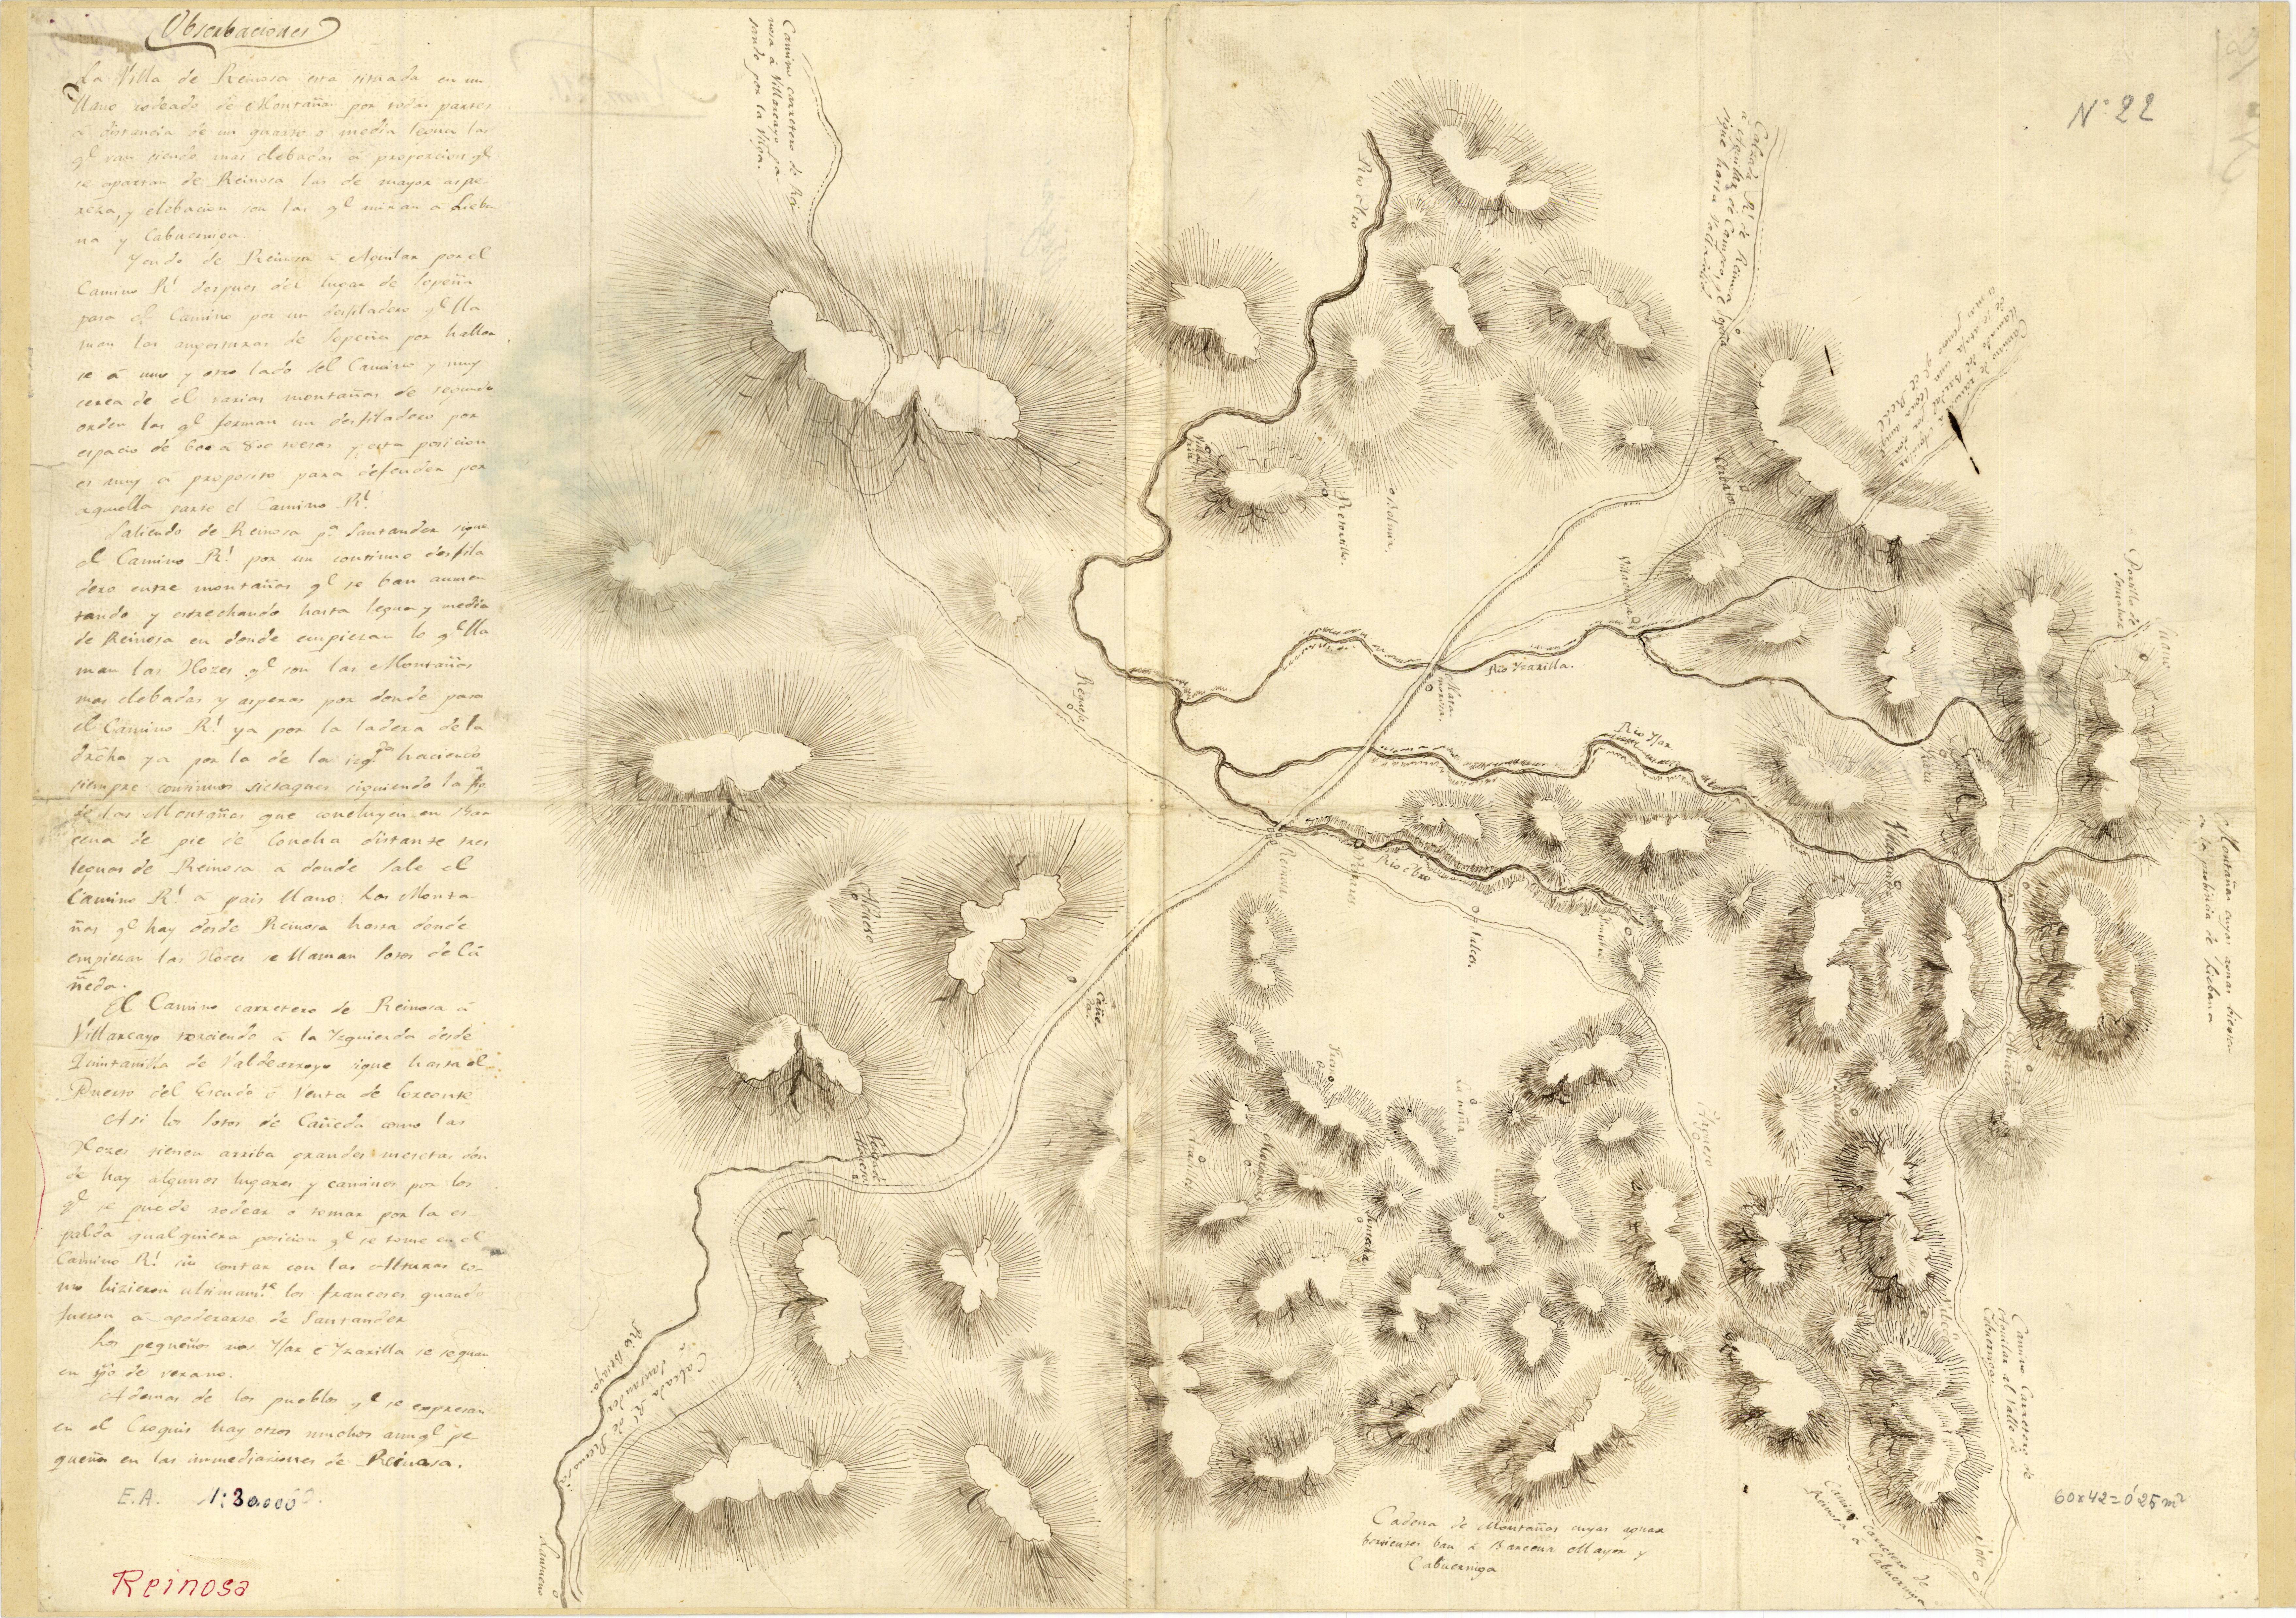 Obserbaciones
La Villa de Reinosa esta situada en un
llano rodeado de Montañas por todas partes
a distancia de un quarto o media legua las
qe van siendo mas elebadas á proporcion qe
se apartan de Reinosa las de mayor aspe
reza, y elebacion son las qe miran á Lieba
na y Cabuerniga.
Yendo de Reinosa a Aguilar por el
Camino Rl. despues del lugar de Popeña
pasa el Camino por un desfiladero qe lla
man las angosturas de Popeña por hallar
se á uno y otro lado del Camino y muy
cerca de el varias montañas de segundo
orden las qe forman un desfiladero por
espacio de 600 a 800 varas y esta posicion
es muy á proposito para defender por
aquella parte el Camino Rl.
Saliendo de Reinosa pa. Santander sigue
el Camino Rl. por un continuo desfila
dero entre montañas qe se ban aumen
tando y estrechando hasta legua y media
de Reinosa en donde empiezan lo qe lla
man las Hozes qe son las Montañas
mas elebadas y asperas por donde pasa
el Camino Rl. ya por la ladera de la
drcha ya por la de la izqda haciendo
siempre continuos sicsaques siguiendo la
de las Montañas que concluyen en Bar
cena de pie de Concha distante tres
leguas de Reinosa a donde sale el
Camino Rl. á pais llano: las Monta
ñas qe hay desde Reinosa hasta donde
empiezan las Hozes se llaman Sotos de Cá
ñeda.
El Camino carretero de Reinosa á
Villarcayo torciendo á la Yzquierda desde
Quintanilla de Valdearroyo sigue hasta el
Puerto del Escudo ó Venta de Corconte
Asi los Sotos de Cañeda como las
Hozes tienen arriba grandes mesetas don
de hay algunos lugares y caminos por los
qe se puede rodear o tomar por la es
palda qualquiera posicion qe se tome en el
Camino Rl. sin contar con las alturas co
mo hizieron ultimamte. los franceses quando
fueron á apoderarse de Santander
Los pequeños rios Yjar é Yzarilla se sequan
en tpo de verano.
Ademas de los pueblos qe se expresan
en el Croquis hay otros muchos aunqe pe
queños en las inmediaciones de Reinosa.
E.A. 1:30.000
Reinosa
Camino carretero de Rei
nosa á Villarcayo pa
sando por la Vilga.
Rio Ebro
Calzada Rl. de Reinosa
a Aguilar de Campos, y
sigue hasta Valladolid
Nº 22
Cerbatos
Retortillo.
Bolmir.
Villaescusa
Portillo de
Somahoz
Suano
Rio Yzarilla.
Mata
morosa.
Requejo
Rio Yjar
Reinosa
Rio Ebro
Nazes
Salces.
Fontibre
Villacantid
Montañas cuyas aguas bierten
en la probincia de Liebana
Aldueso
Cañe
da.
Pesquera
Rio Besaya.
Calzada Rl. de Reinosa
á Santander
Lantueno
Cadena de Montañas cuyas aguas
bertientes ban á Barcena Mayor y
Cabuerniga
Camino Carretero de
Aguilar al Valle de
Cabuerniga
Camino carretero de
Reinosa a Cabuerniga
Soto
60x42=0'25 m²